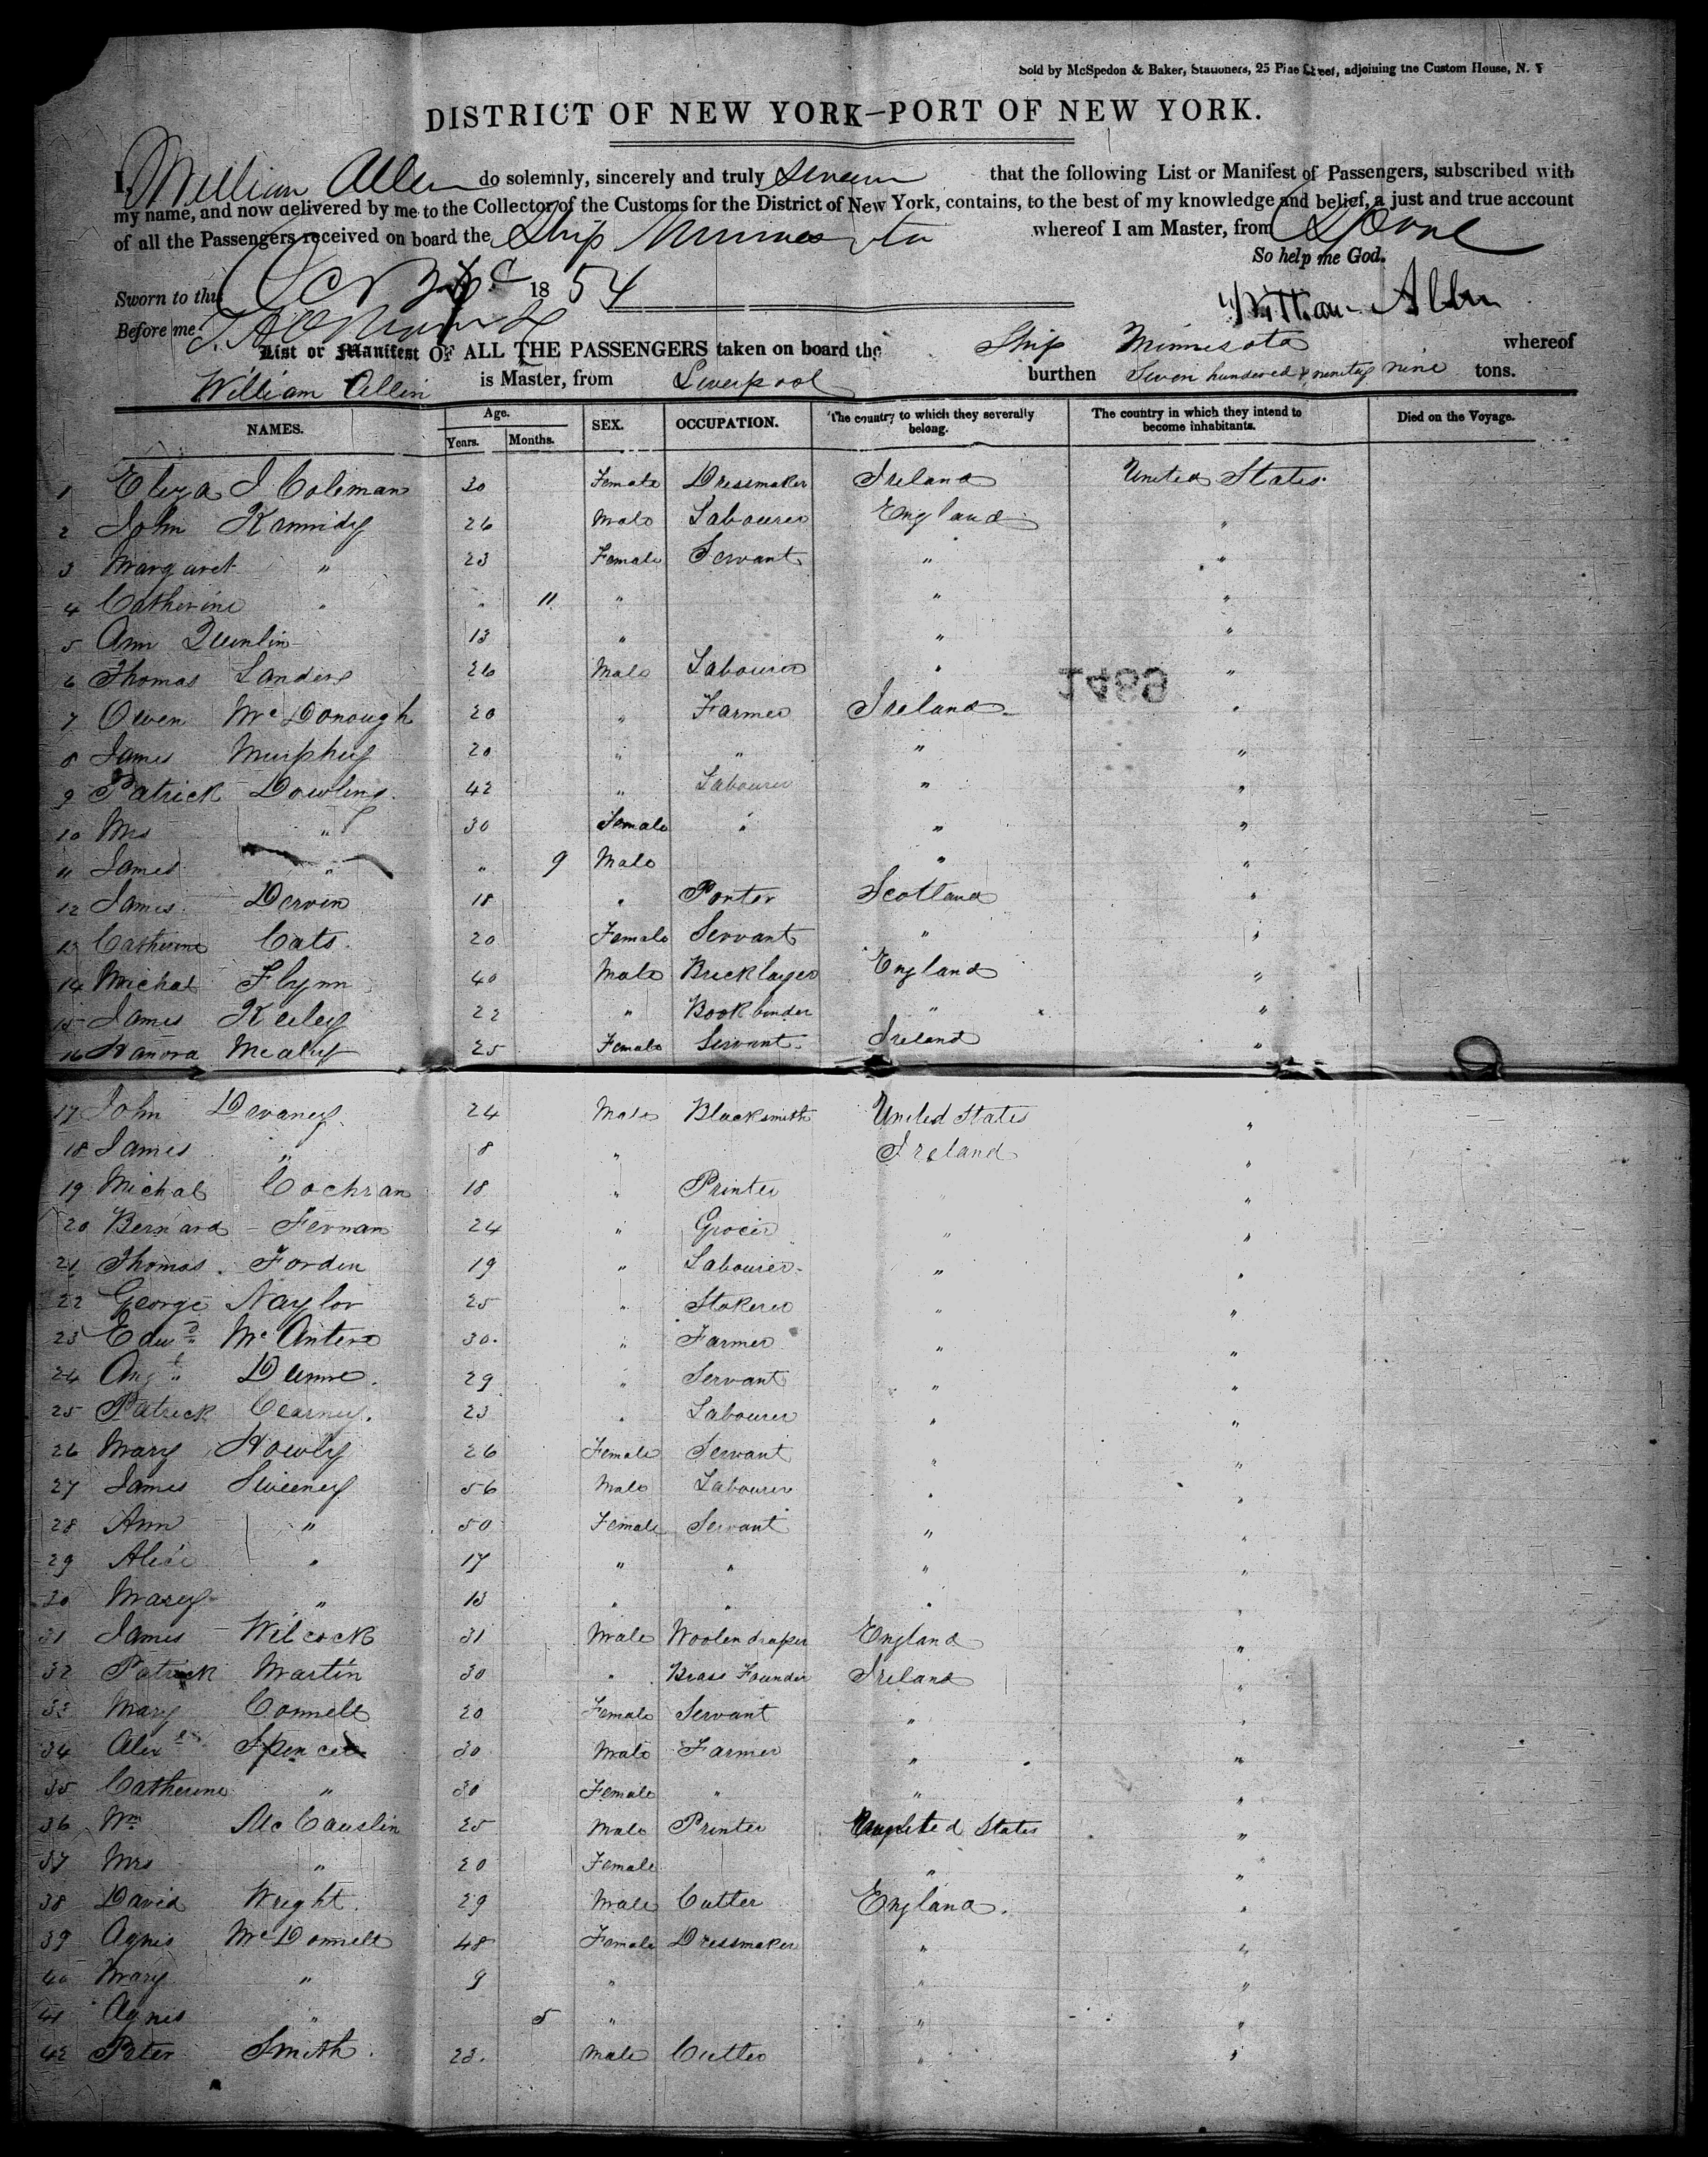 Sold by McSpedon & Baker, Stationers, 25 Pine Street, adjoining the Custom House, N. Y
DISTRICT OF NEW YORK—PORT OF NEW YORK.
I, William Allen do solemnly, sincerely and truly Swear that the following List or Manifest of Passengers, subscribed with
my name, and now delivered by me to the Collector of the Customs for the District of New York, contains, to the best of my knowledge and belief, a just and true account
of all the Passengers received on board the Ship Minnesota whereof I am Master, from Lpool
So help me God.
Sworn to this Oct 1854
William Allen
Before me
List or Manifest OF ALL THE PASSENGERS taken on board the Ship Minnesota whereof
William Allin is Master, from Liverpool burthen Seven hundered & ninety nine tons.
NAMES. Age. Years. Months. SEX. OCCUPATION. The country to which they severally belong. The country in which they intend to become inhabitants. Died on the Voyage.
1 Eliza J Coleman 30 Female Dressmaker Ireland United States
2 John Kannidy 26 Male Labourer England "
3 Margaret " 23 Female Servant " "
4 Catherine " " 11 " " "
5 Ann Quinlin 13 " " "
6 Thomas Landers 26 Male Labourer " "
1489
7 Owen McDonough 20 " Farmer Ireland "
8 James Murphy 20 " " " "
9 Patrick Dowling 42 " Labourer " "
10 Mrs " 30 Female " " "
11 James " " 9 Male " "
12 James Dervin 18 " Porter Scotland "
13 Catherine Cats 20 Female Servant " "
14 Michal Flynn 40 Male Bricklayer England "
15 James Keeley 22 " Book binder " "
16 Hanora Mealy 25 Female Servant Ireland "
17 John Devaney 24 Male Blacksmith United States "
18 James " 8 " Ireland "
19 Michal Cochran 18 " Printer " "
20 Bernard Fernan 24 " Grocer " "
21 Thomas Forden 19 " Labourer " "
22 George Naylor 25 " Stoker " "
23 Edwd McAntere 30 " Farmer " "
24 Dunne 29 " Servant " "
25 Patrick Cearney 23 " Labourer " "
26 Mary Howly 26 Female Servant " "
27 James Sweeney 56 Male Labourer " "
28 Ann " 50 Female Servant " "
29 Alice " 17 " " " "
30 Mary " 13 " " " "
31 James Wilcock 31 Male Woolen draper England "
32 Patrick Martin 30 " Brass Founder Ireland "
33 Mary Connell 20 Female Servant " "
34 Alexr Spencer 30 Male Farmer " "
35 Catherine " 30 Female " " "
36 Wm McCauslin 25 Male Printer United States "
37 Mrs " 20 Female " "
38 David Wright 29 Male Cutter England "
39 Agnes McDonnell 48 Female Dressmaker " "
40 Mary " 9 " " "
41 Agnes " 5 " " "
42 Peter Smith 23 Male Cutter " "